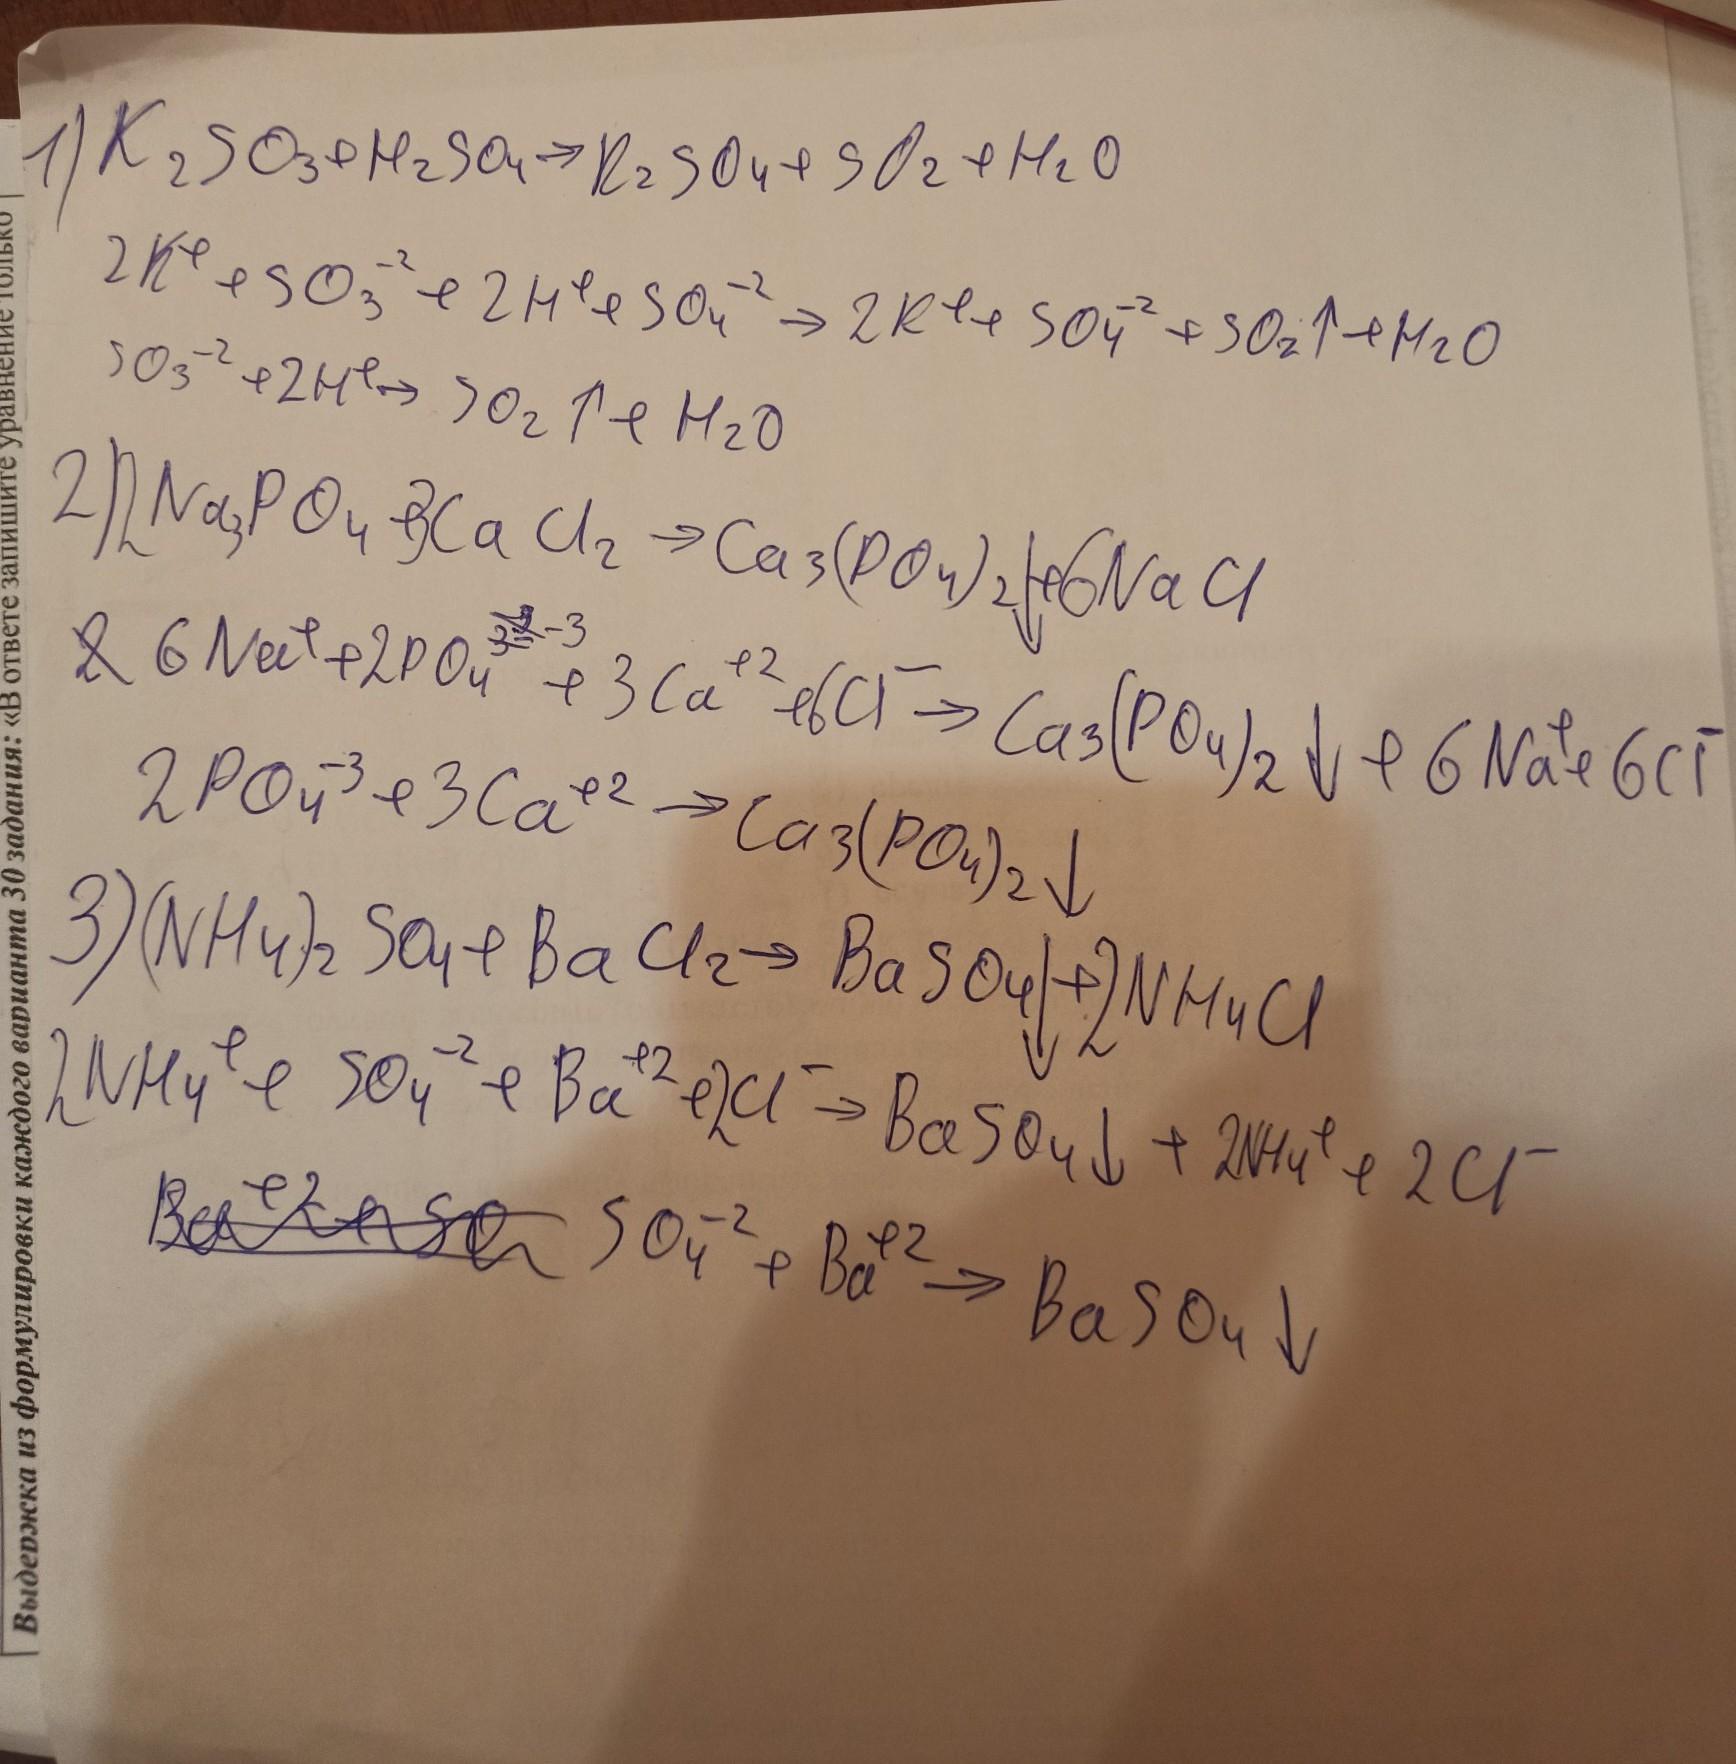 1) K₂SO₃ + H₂SO₄ → K₂SO₄ + SO₂ + H₂O
2K⁺ + SO₃⁻² + 2H⁺ + SO₄⁻² → 2K⁺ + SO₄⁻² + SO₂↑ + H₂O
SO₃⁻² + 2H⁺ → SO₂↑ + H₂O
2) 2Na₃PO₄ + 3CaCl₂ → Ca₃(PO₄)₂↓ + 6NaCl
6Na⁺ + 2PO₄⁻³ + 3Ca⁺² + 6Cl⁻ → Ca₃(PO₄)₂↓ + 6Na⁺ + 6Cl⁻
2PO₄⁻³ + 3Ca⁺² → Ca₃(PO₄)₂↓
3) (NH₄)₂SO₄ + BaCl₂ → BaSO₄↓ + 2NH₄Cl
2NH₄⁺ + SO₄⁻² + Ba⁺² + 2Cl⁻ → BaSO₄↓ + 2NH₄⁺ + 2Cl⁻
SO₄⁻² + Ba⁺² → BaSO₄↓
Выдержка из формулировки каждого варианта 30 задания: «В ответе запишите уравнение только